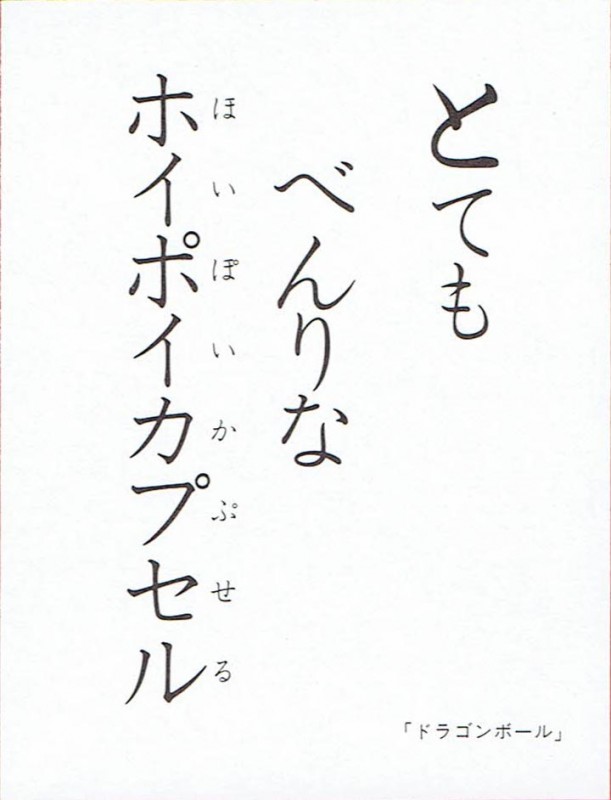 とても
べんりな
ホイポイカプセル
ほいぽいかぷせる
「ドラゴンボール」